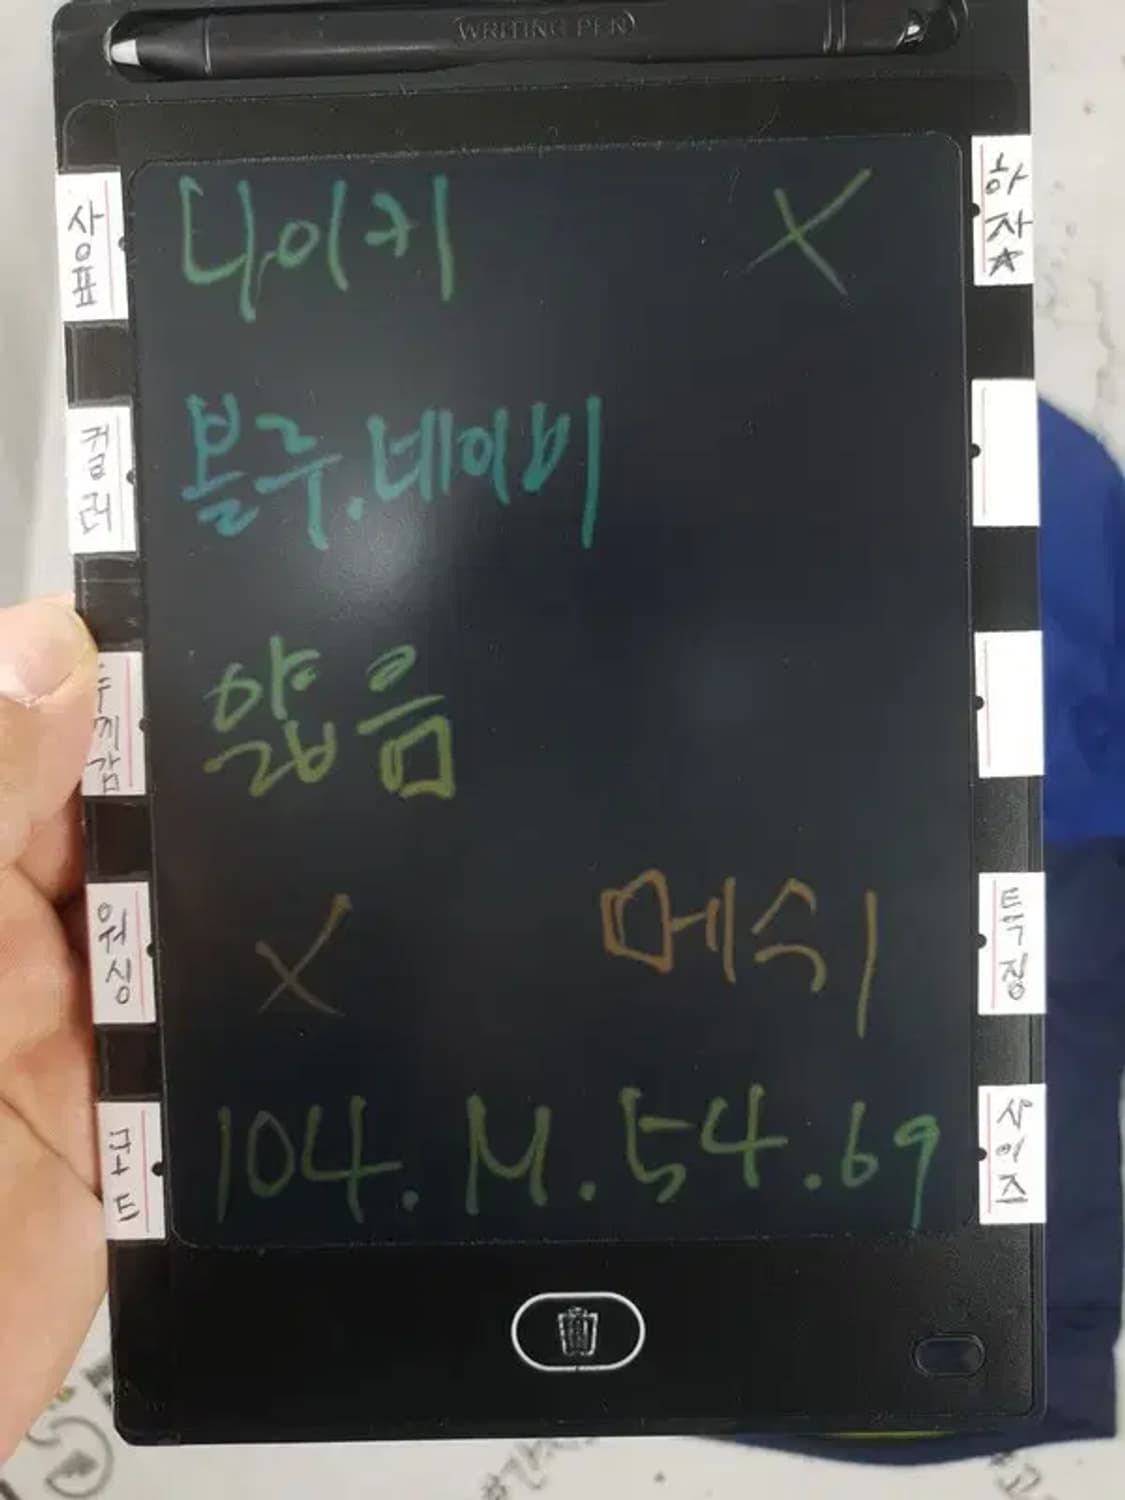 WRITING PEN
상표 나이키 X 하자☆
컬러 블루.네이비
두께감 얇음
워싱 X 메쉬 특징
코드 104.M.54.69 사이즈